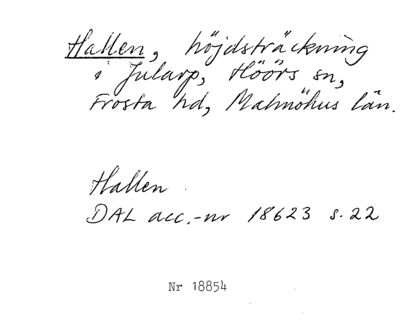 Hallen, höjdsträckning
i Jularp, Höörs sn,
Frosta hd, Malmöhus län.
Hallen
DAL acc.-nr 18623 s. 22
Nr 18854